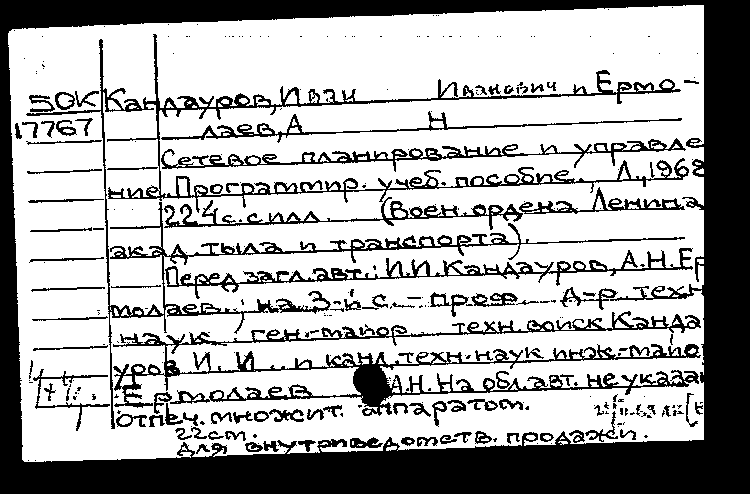 50К Кандауров, Иван Иванович и Ермо-
17767 лаев, А Н
Сетевое планирование и управле
ние. Программир. учеб. пособие., Л., 1968
224 с. с илл. (Воен. ордена Ленина
акад. тыла и транспорта).
Перед загл. авт.: И.И. Кандауров, А.Н. Ер
молаев; на 3-й с. - проф. д-р техн
наук ген.-майор техн. войск Канда
уров И. И. и канд. техн. наук инж.-майо
Ермолаев А.Н. На обл. авт. не указан
отпеч. множит. аппаратом.
22 см.
Для внутриведомств. продажи.